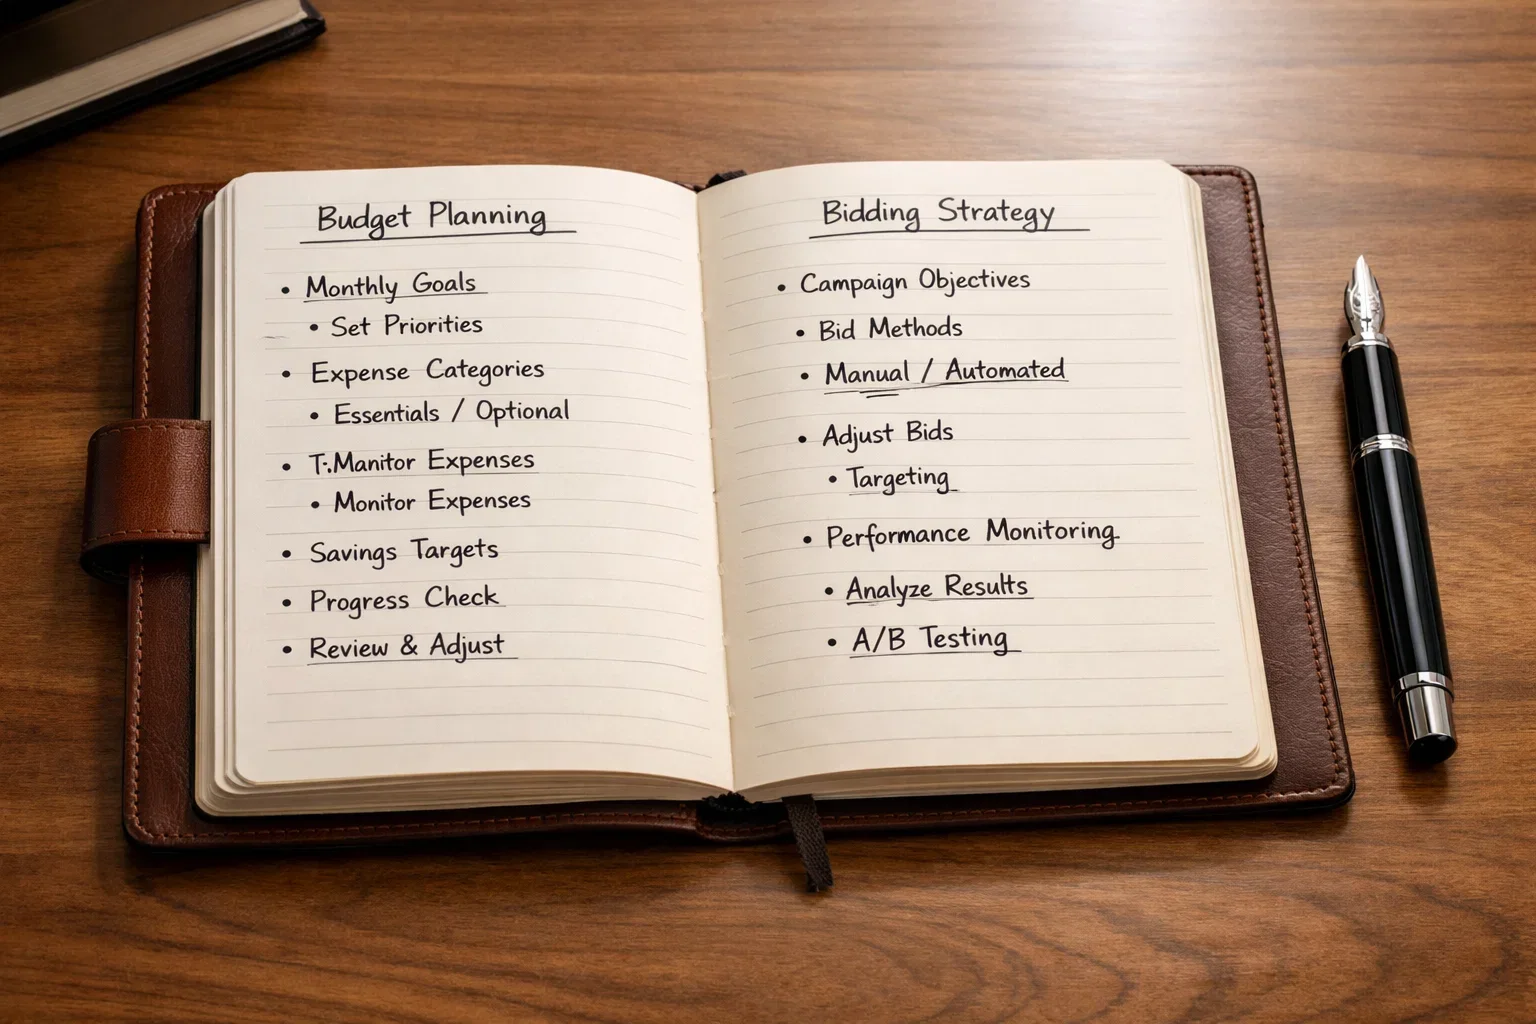 Budget Planning
• Monthly Goals
• Set Priorities
• Expense Categories
• Essentials / Optional
• T:.Manitor Expenses
• Monitor Expenses
• Savings Targets
• Progress Check
• Review & Adjust
Bidding Strategy
• Campaign Objectives
• Bid Methods
• Manual / Automated
• Adjust Bids
• Targeting
• Performance Monitoring
• Analyze Results
• A/B Testing